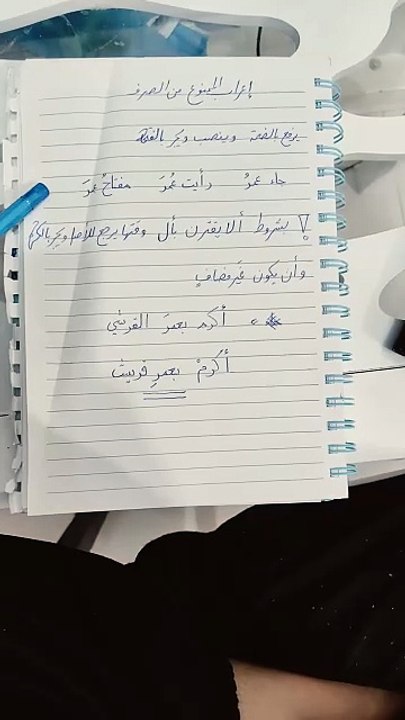 إعراب الممنوع من الصرف
يرفع بالضمة وينصب ويجر بالفتحة
جاء عمرُ رأيت عُمرَ مفتاحُ عمرَ
! بشرط ألا يقترن بأل وقتها يرجع للأصل ويجر بالكسرة
وأن يكون غير مضافٍ
أكرم بعمرَ القرشي
أكرمْ بعمرِ قريش